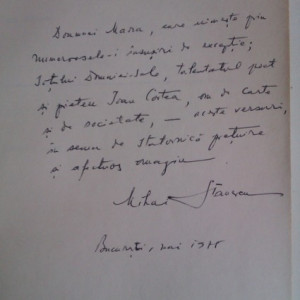 Doamnei Mara, care uimește prin
numeroasele-i însușiri de excepție;
Soțului Domniei-Sale, talentatul poet
și prieten Ioan Costea, om de carte
și de societate, — aceste versuri,
în semn de statornică prețuire
și afectuos omagiu
Mihai Stănescu
București, mai